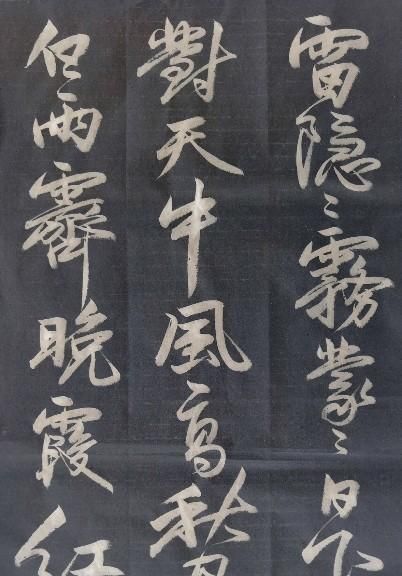 雷隐〻霧蒙〻日下
對天中風高秋月
白雨霽晚霞紅